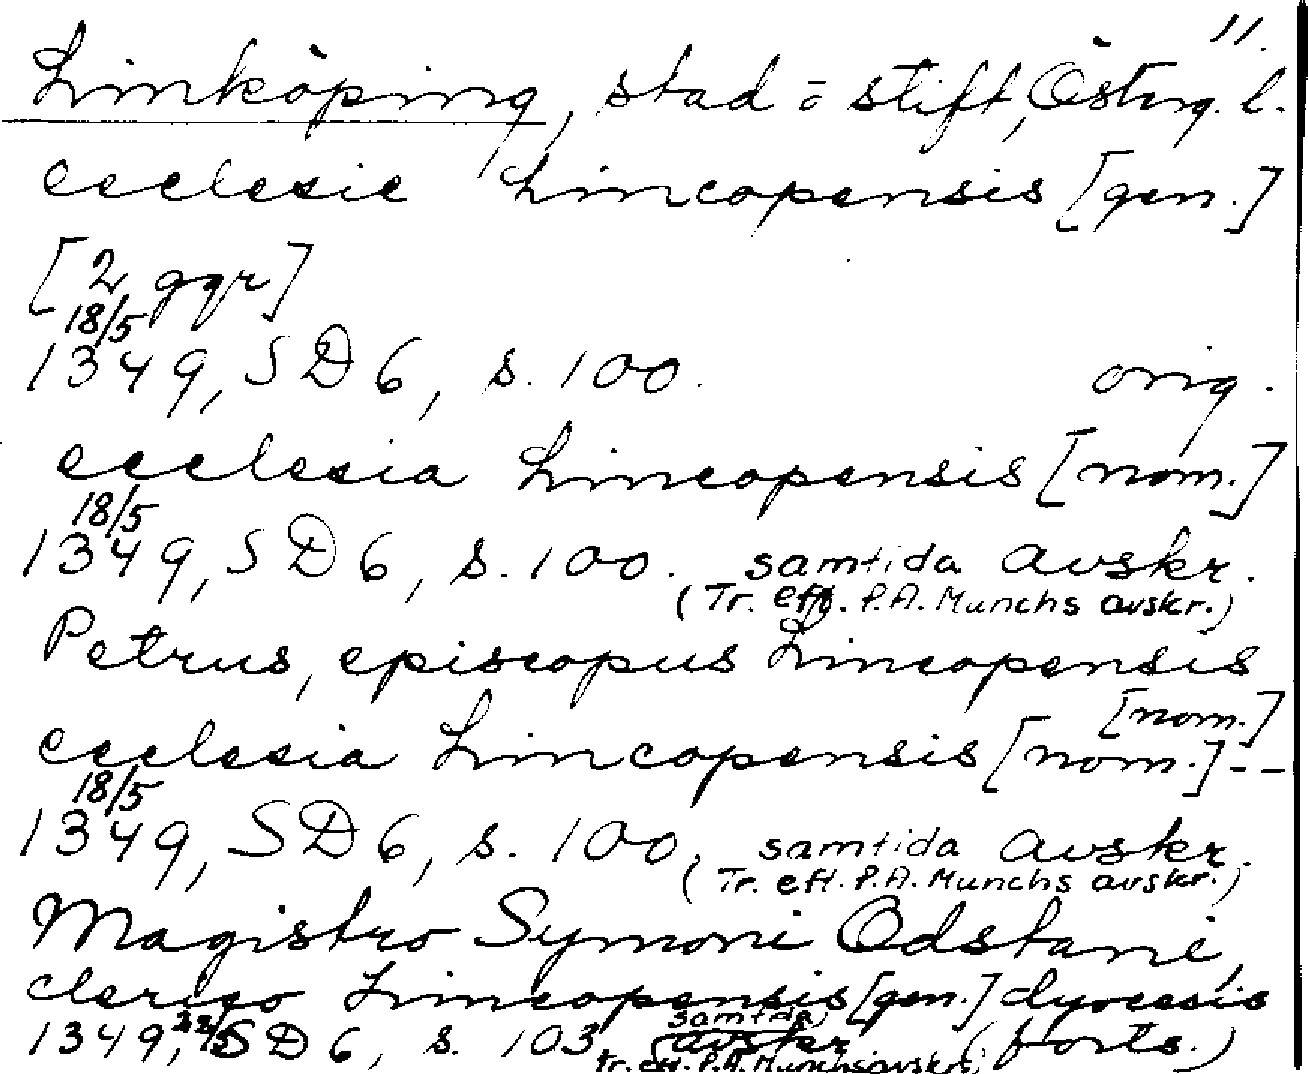 11.
Linköping, stad o stift, Österg. l.
ecclesie Lincopensis [gen.]
[2 ggr]
18/5
1349, SD 6, s. 100. orig.
ecclesia Lincopensis [nom.]
18/5
1349, SD 6, s. 100. samtida avskr.
(Tr. eft. P.A. Munchs avskr.)
Petrus, episcopus Lincopensis
[nom.]
ecclesia Lincopensis [nom.] --
18/5
1349, SD 6, s. 100. samtida avskr.
(Tr. eft. P.A. Munchs avskr.)
Magistro Symoni Odstani,
clerico Lincopensis [gen.] dyocesis
samtida
1349, 22/5 SD 6, s. 103. avskr. (forts.)
Tr. eft. P.A. Munchs avskr.